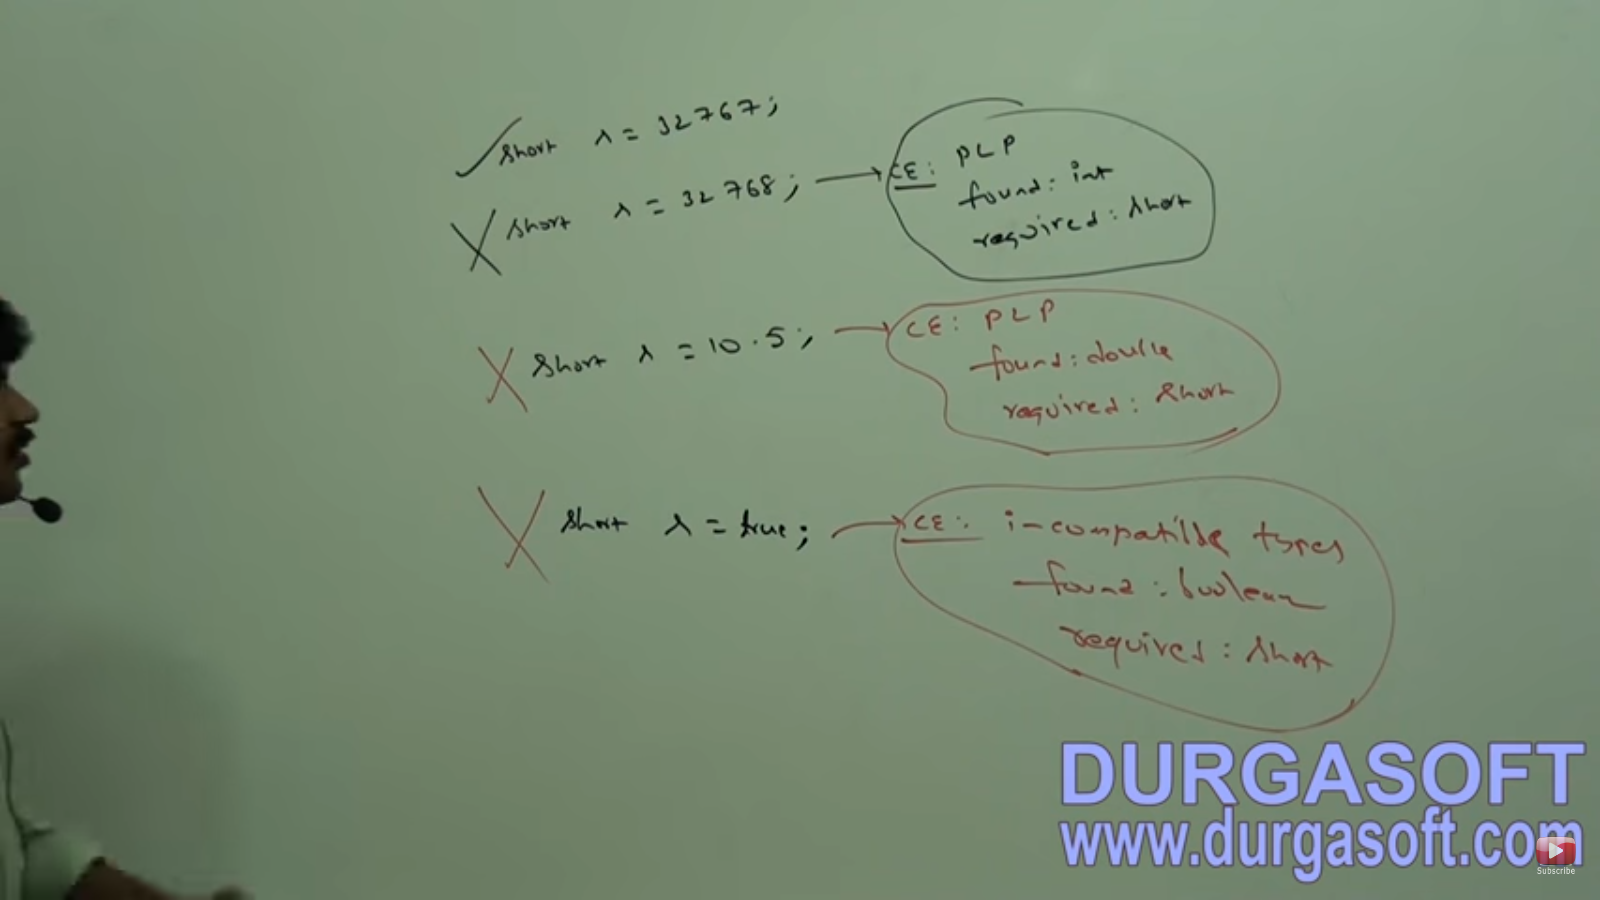 short s = 32767;
short s = 32768; → CE: PLP
found: int
required: short
short s = 10.5; → CE: PLP
found: double
required: short
short s = true; → CE: incompatible types
found: boolean
required: short
DURGASOFT
www.durgasoft.com
Subscribe